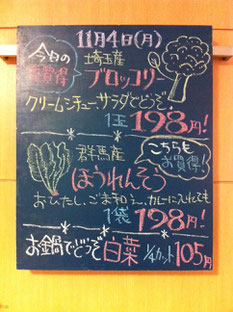 11月4日(月)
今日のお買得
埼玉産
ブロッコリー
クリームシチュー、サラダでどうぞ!
1玉 198円!
群馬産
こちらもお買得!
ほうれんそう
おひたし、ごま和え、カレーに入れても
1袋 198円!
お鍋でどうぞ 白菜 1/4カット 105円